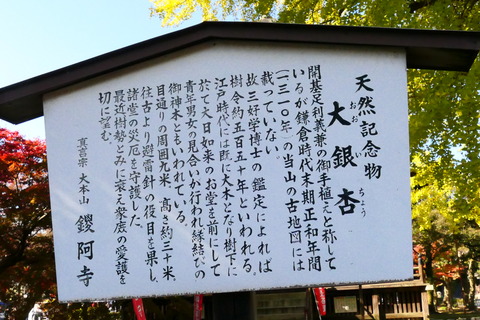 天然記念物
大銀杏
おおい ちょう
開基足利義兼の御手植えと称して
いるが鎌倉時代末期正和年間
(一三一〇年)の当山の古地図には
載っていない。
故三好学博士の鑑定によれば
樹令約五百五十年といわれる。
江戸時代には既に大木となり樹下に
於て大日如来のお堂を前にして
青年男女の見合いが行われ縁結びの
御神木ともいわれている。
目通りの周囲九米、高さ約三十米、
往古より避雷針の役目を果し、
諸堂の災厄を守護した。
最近樹勢とみに衰え衆庶の愛護を
切に望む。
真言宗 大本山 鑁阿寺